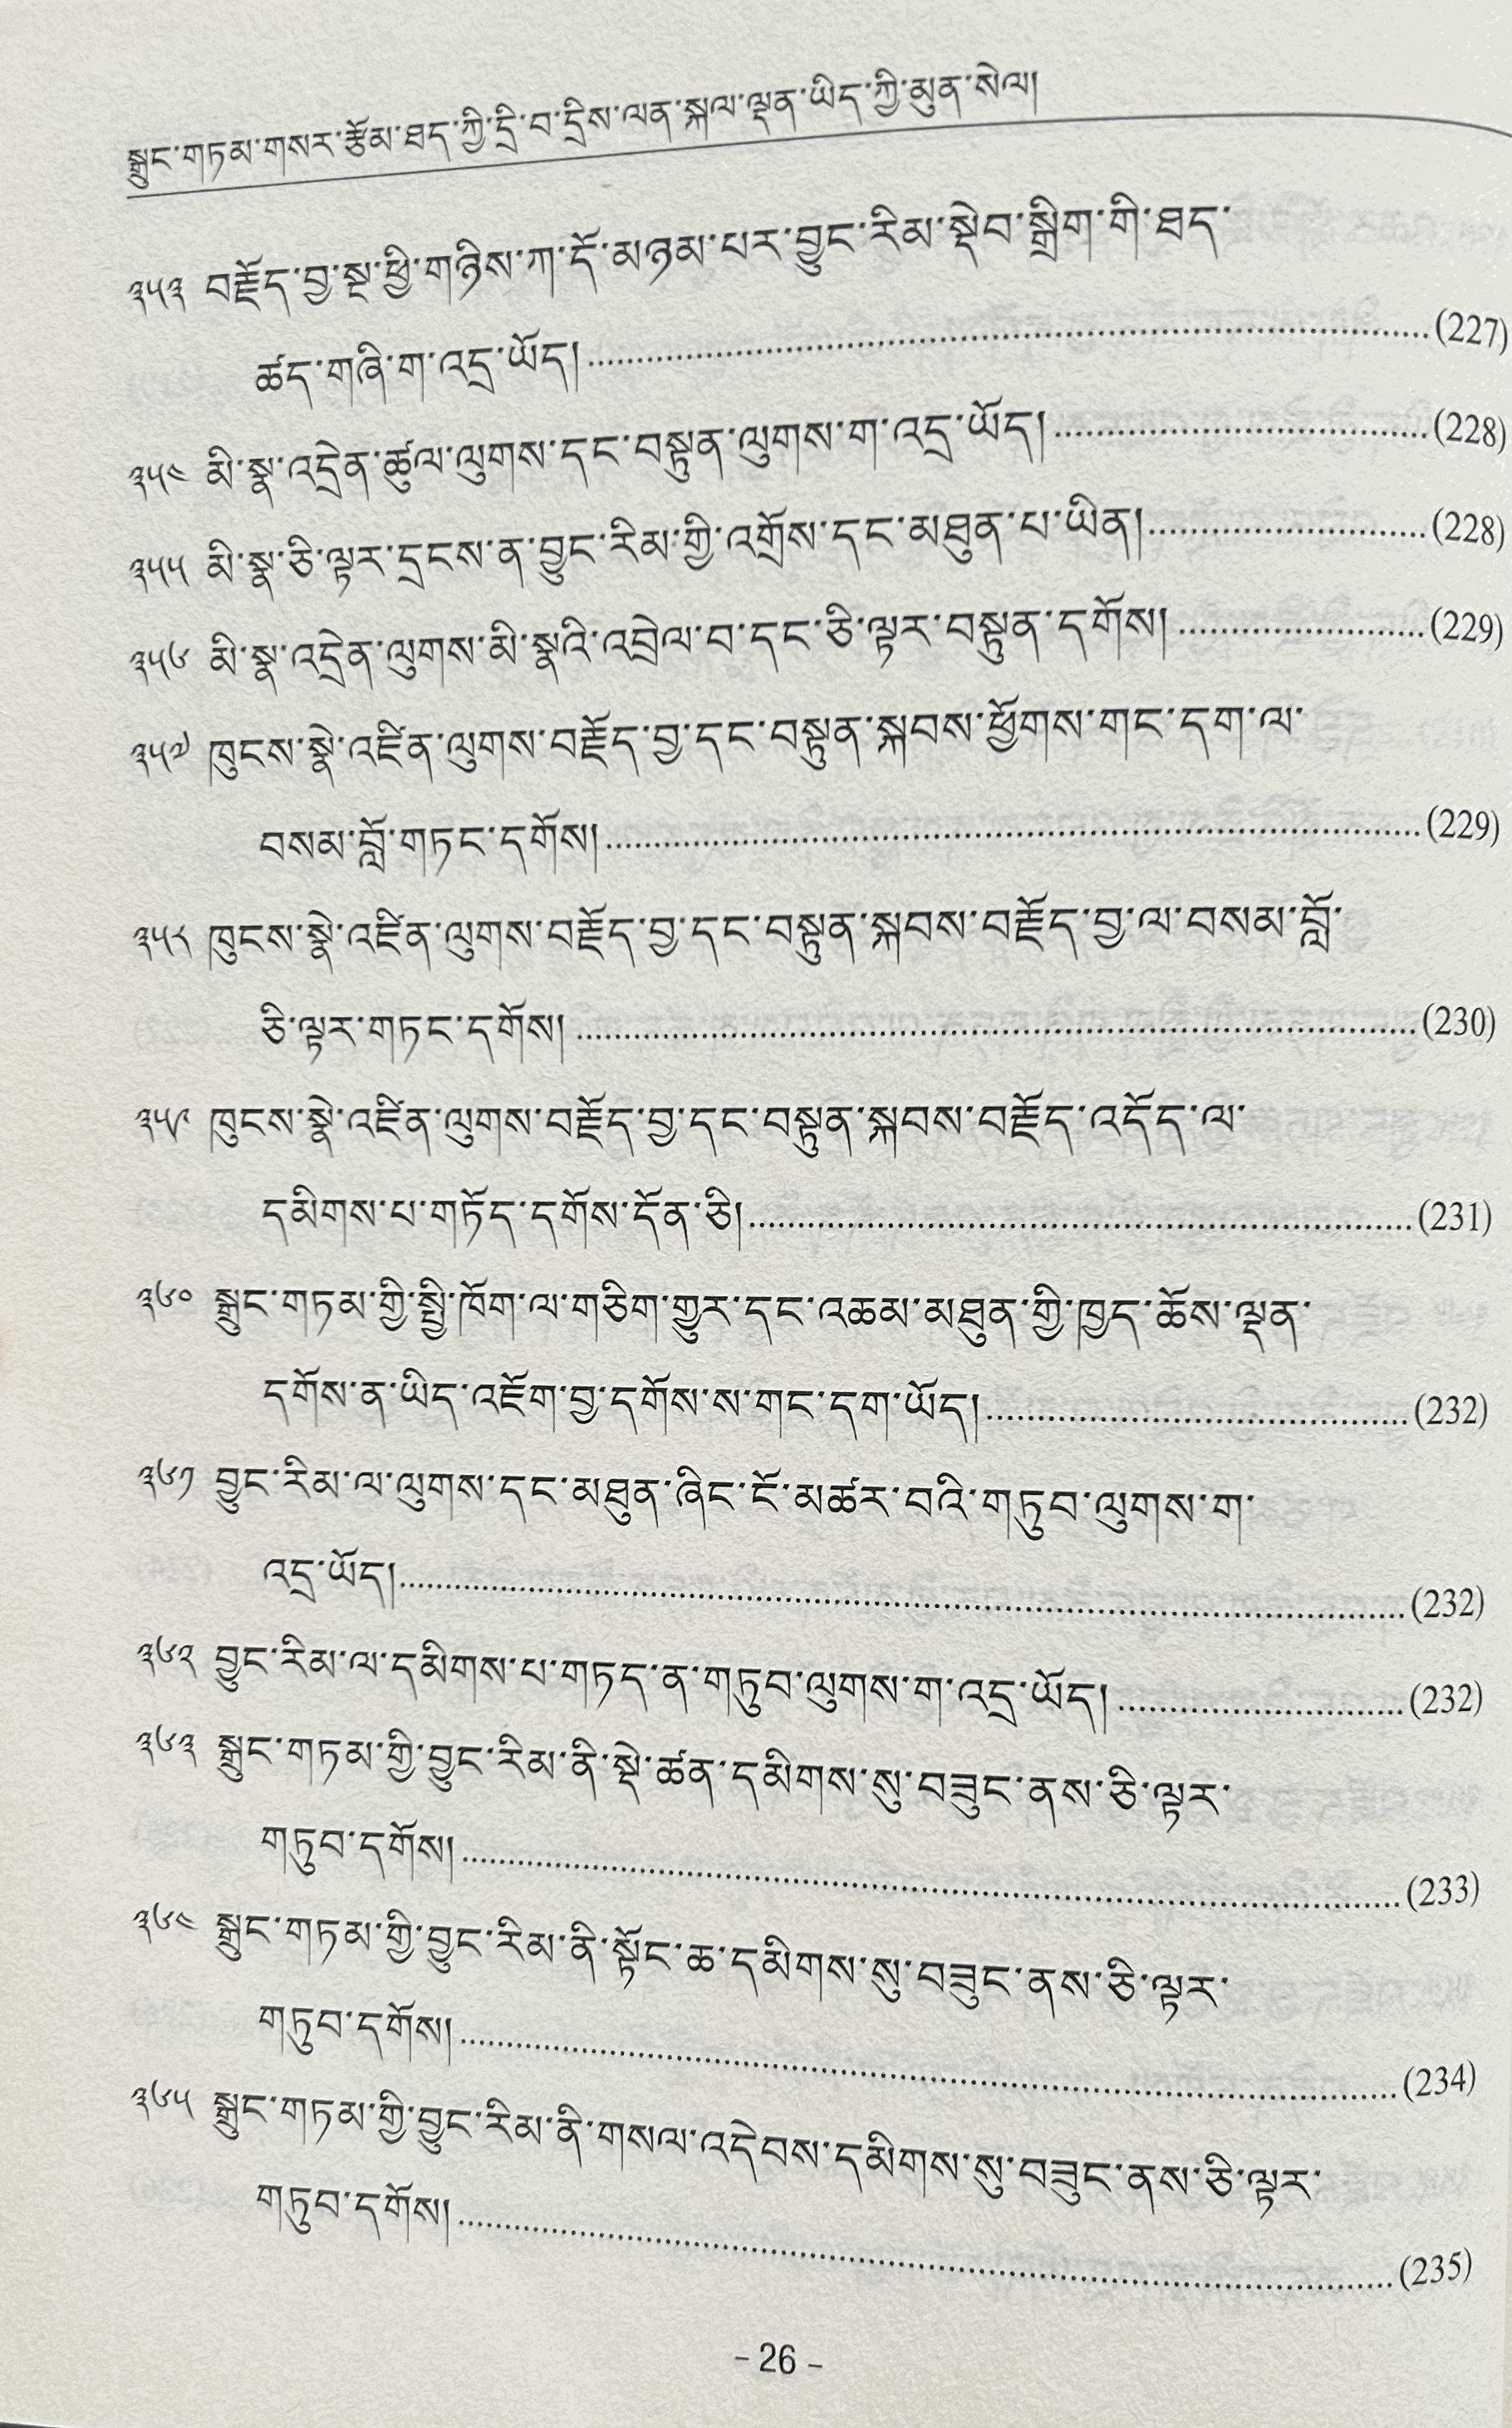 སྒྲུང་གཏམ་གསར་རྩོམ་ཐད་ཀྱི་དྲི་བ་དྲིས་ལན་སྐལ་ལྡན་ཡིད་ཀྱི་མུན་སེལ།
༣༥༣ བརྗོད་བྱ་སྔ་ཕྱི་གཉིས་ཀ་དོ་མཉམ་པར་བྱུང་རིམ་སྡེབ་སྒྲིག་གི་ཐད་
ཚད་གཞི་ག་འདྲ་ཡོད།........................................(227)
༣༥༤ མི་སྣ་འདྲེན་ཚུལ་ལུགས་དང་བསྟུན་ལུགས་ག་འདྲ་ཡོད།....................(228)
༣༥༥ མི་སྣ་ཅི་ལྟར་དྲངས་ན་བྱུང་རིམ་གྱི་འགྲོས་དང་མཐུན་པ་ཡིན།...............(228)
༣༥༦ མི་སྣ་འདྲེན་ལུགས་མི་སྣའི་འབྲེལ་བ་དང་ཅི་ལྟར་བསྟུན་དགོས། ..............(229)
༣༥༧ ཁུངས་སྣེ་འཛིན་ལུགས་བརྗོད་བྱ་དང་བསྟུན་སྐབས་ཕྱོགས་གང་དག་ལ་
བསམ་བློ་གཏང་དགོས།........................................(229)
༣༥༨ ཁུངས་སྣེ་འཛིན་ལུགས་བརྗོད་བྱ་དང་བསྟུན་སྐབས་བརྗོད་བྱ་ལ་བསམ་བློ་
ཅི་ལྟར་གཏང་དགོས། ........................................(230)
༣༥༩ ཁུངས་སྣེ་འཛིན་ལུགས་བརྗོད་བྱ་དང་བསྟུན་སྐབས་བརྗོད་འདོད་ལ་
དམིགས་པ་གཏོད་དགོས་དོན་ཅི།..................................(231)
༣༦༠ སྒྲུང་གཏམ་གྱི་སྤྱི་ཁོག་ལ་གཅིག་གྱུར་དང་འཆམ་མཐུན་གྱི་ཁྱད་ཆོས་ལྡན་
དགོས་ན་ཡིད་འཇོག་བྱ་དགོས་ས་གང་དག་ཡོད།.......................(232)
༣༦༡ བྱུང་རིམ་ལ་ལུགས་དང་མཐུན་ཞིང་ངོ་མཚར་བའི་གཏུབ་ལུགས་ག་
འདྲ་ཡོད།..................................................(232)
༣༦༢ བྱུང་རིམ་ལ་དམིགས་པ་གཏད་ན་གཏུབ་ལུགས་ག་འདྲ་ཡོད། ...............(232)
༣༦༣ སྒྲུང་གཏམ་གྱི་བྱུང་རིམ་ནི་སྡེ་ཚན་དམིགས་སུ་བཟུང་ནས་ཅི་ལྟར་
གཏུབ་དགོས།...............................................(233)
༣༦༤ སྒྲུང་གཏམ་གྱི་བྱུང་རིམ་ནི་སྟོང་ཆ་དམིགས་སུ་བཟུང་ནས་ཅི་ལྟར་
གཏུབ་དགོས།...............................................(234)
༣༦༥ སྒྲུང་གཏམ་གྱི་བྱུང་རིམ་ནི་གསལ་འདེབས་དམིགས་སུ་བཟུང་ནས་ཅི་ལྟར་
གཏུབ་དགོས།...............................................(235)
– 26 –